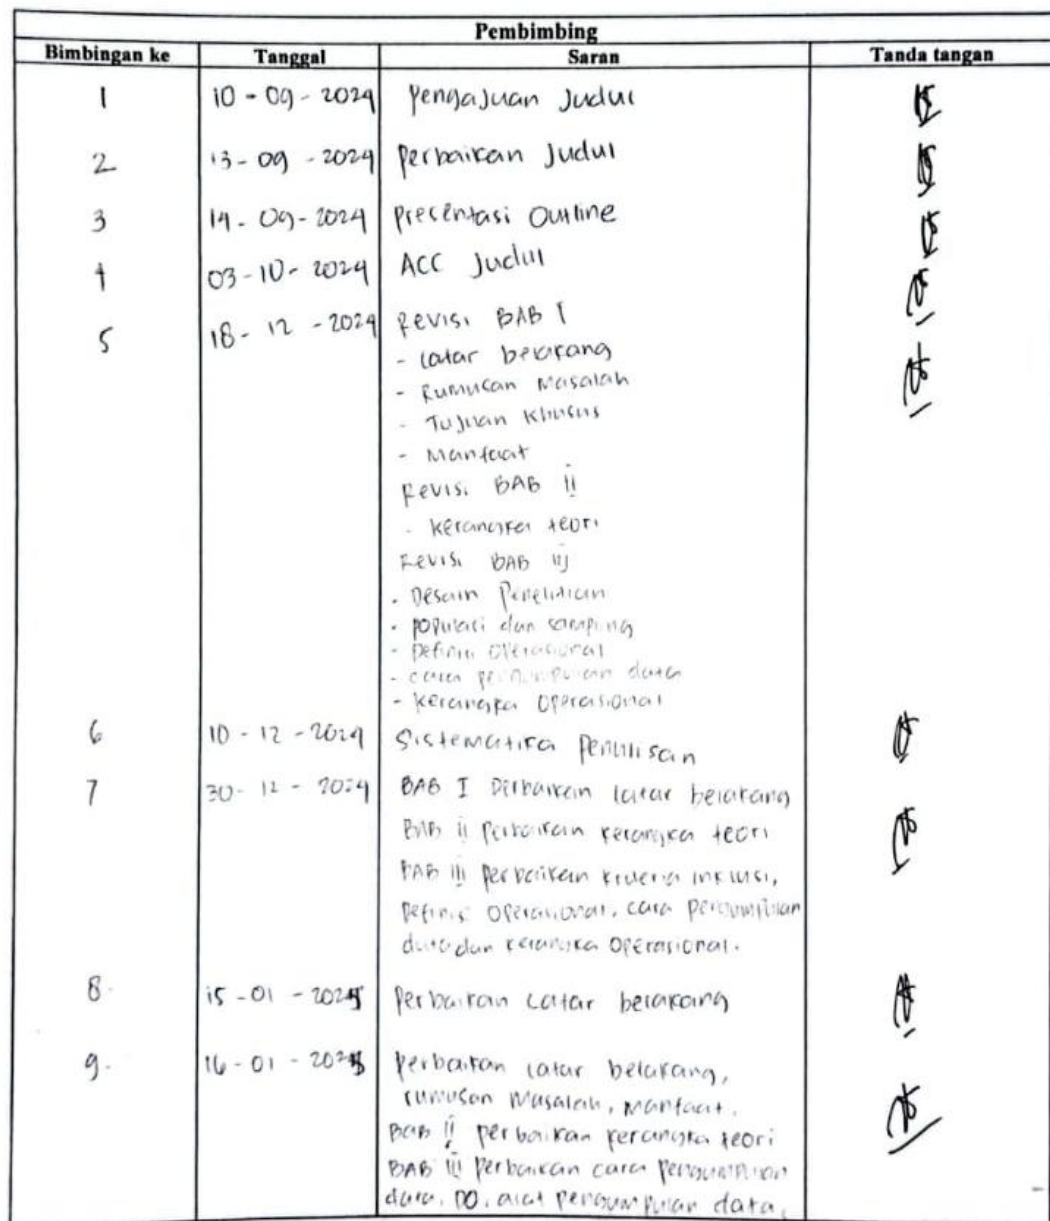 Pembimbing
Bimbingan ke Tanggal Saran Tanda tangan
1 10 - 09 - 2024 Pengajuan Judul
2 13 - 09 - 2024 Perbaikan Judul
3 19 - 09 - 2024 Presentasi Outline
4 03 - 10 - 2024 ACC Judul
5 18 - 12 - 2024 Revisi BAB I
- Latar belakang
- Rumusan Masalah
- Tujuan Khusus
- Manfaat
Revisi BAB ii
- Kerangka teori
Revisi BAB iii
- Desain Penelitian
- Populasi dan sampling
- Definisi Operasional
- cara pengumpulan data
- Kerangka Operasional
6 10 - 12 - 2024 Sistematika Penulisan
7 30 - 12 - 2024 BAB I Perbaikan latar belakang
BAB ii perbaikan kerangka teori
BAB iii perbaikan kriteria inklusi,
Definisi Operasional, cara pengumpulan
data dan kerangka Operasional.
8. 15 - 01 - 2025 Perbaikan Latar belakang
9. 16 - 01 - 2025 Perbaikan latar belakang,
rumusan Masalah, Manfaat.
BAB ii perbaikan kerangka teori
BAB iii Perbaikan cara Pengumpulan
data, DO, alat pengumpulan data,